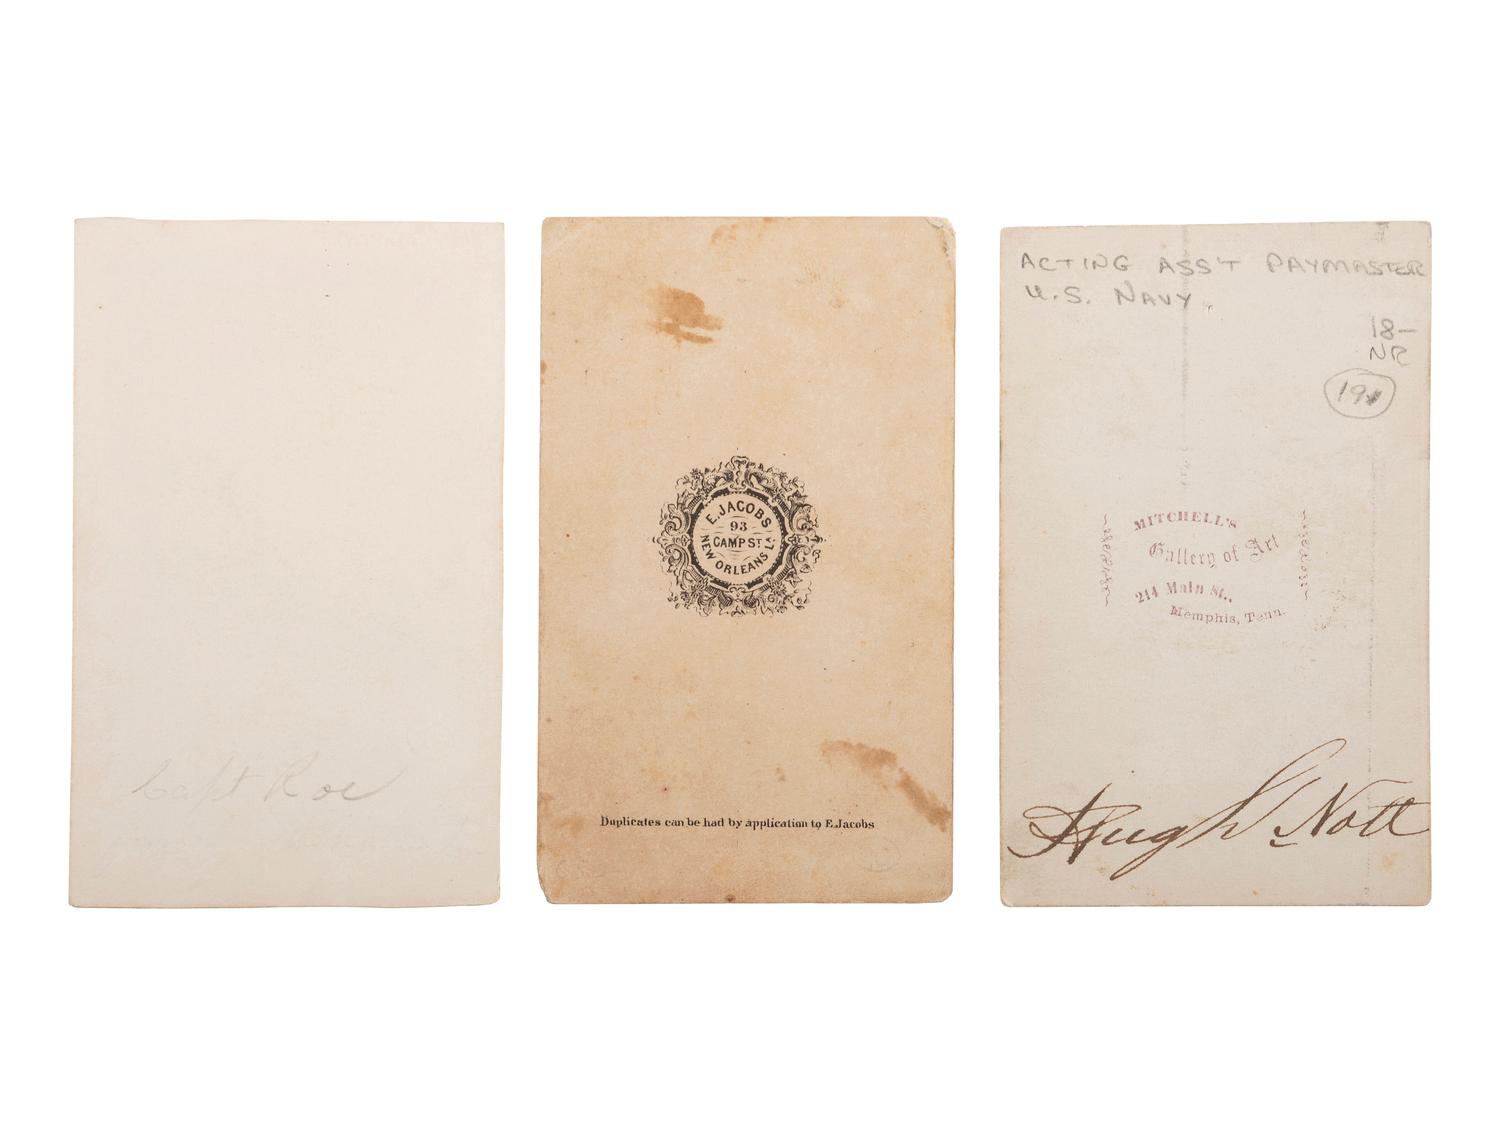 Capt Roe
E. JACOBS
93
CAMP ST
NEW ORLEANS LA
Duplicates can be had by application to E. Jacobs
ACTING ASS'T PAYMASTER
U.S. NAVY.
18-
NR
19
MITCHELL'S
Gallery of Art
214 Main St.,
Memphis, Tenn.
Hugh L Nott